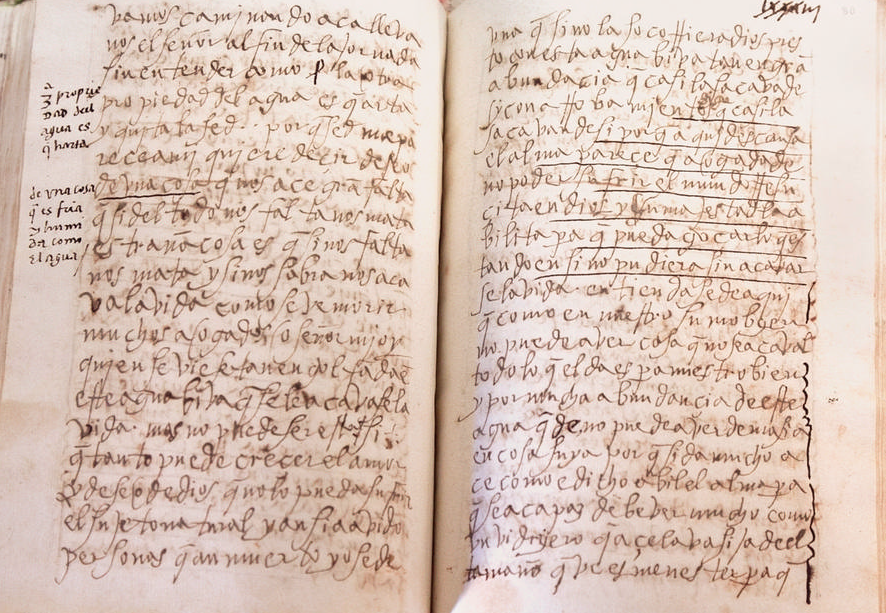 vamos caminando acalleva
nos el señor al fin dela jornada
sin entender como
propiedad del agua es q̄ arta
y quita la sed. por q̄ sed me pa
rece a mi quiere decir deseo
de una cosa q̄ nos ace grā falta
q̄ si del todo nos falta nos mata
estraña cosa es q̄ si nos falta
nos mata y si nos sobra nos aca
va la vida como se ve morir
muchos aogados o señor mijo y
quien se viese tan engolfada en
esta agua biva q̄ se le acavase la
vida. mas no puede ser esto si:
q̄ tanto puede crecer el amor
y deseo de dios q̄ no lo pueda sufrir
el sujeto natural y ansi a avido
personas q̄ an muerto yo se de
a
3 proprie
dad del
agua es
q̄ harta
de una cosa
q̄ es fria
y humi
da como
el agua
una q̄ si no la socorriera dios pres
to con esta agua biva tan en grā
abundacia q̄ casi la sacava de
si con arrobamientos q̄ casi la
sacavan de si por q̄ aqui descansa
el alma parece q̄ aogada de
no poder sufrir el mundo resu
cita en dios y su majestad la a
bilita pa q̄ pueda goçar lo q̄ es
tando en si no pudiera sin acavar
se la vida. entiendase de aqui
q̄ como en nuestro sumo bien
no puede aver cosa q̄ no sea caval
todo lo q̄ el da es pa nuestro bien
y por mucha abundancia de este
agua q̄ de no puede aver demasia
en cosa suya por q̄ si da mucho a
ce como e dicho abil el alma pa
q̄ sea capaz de bever mucho como
un vidriero q̄ ace la vasija del
tamaño q̄ ve es menester pa q̄